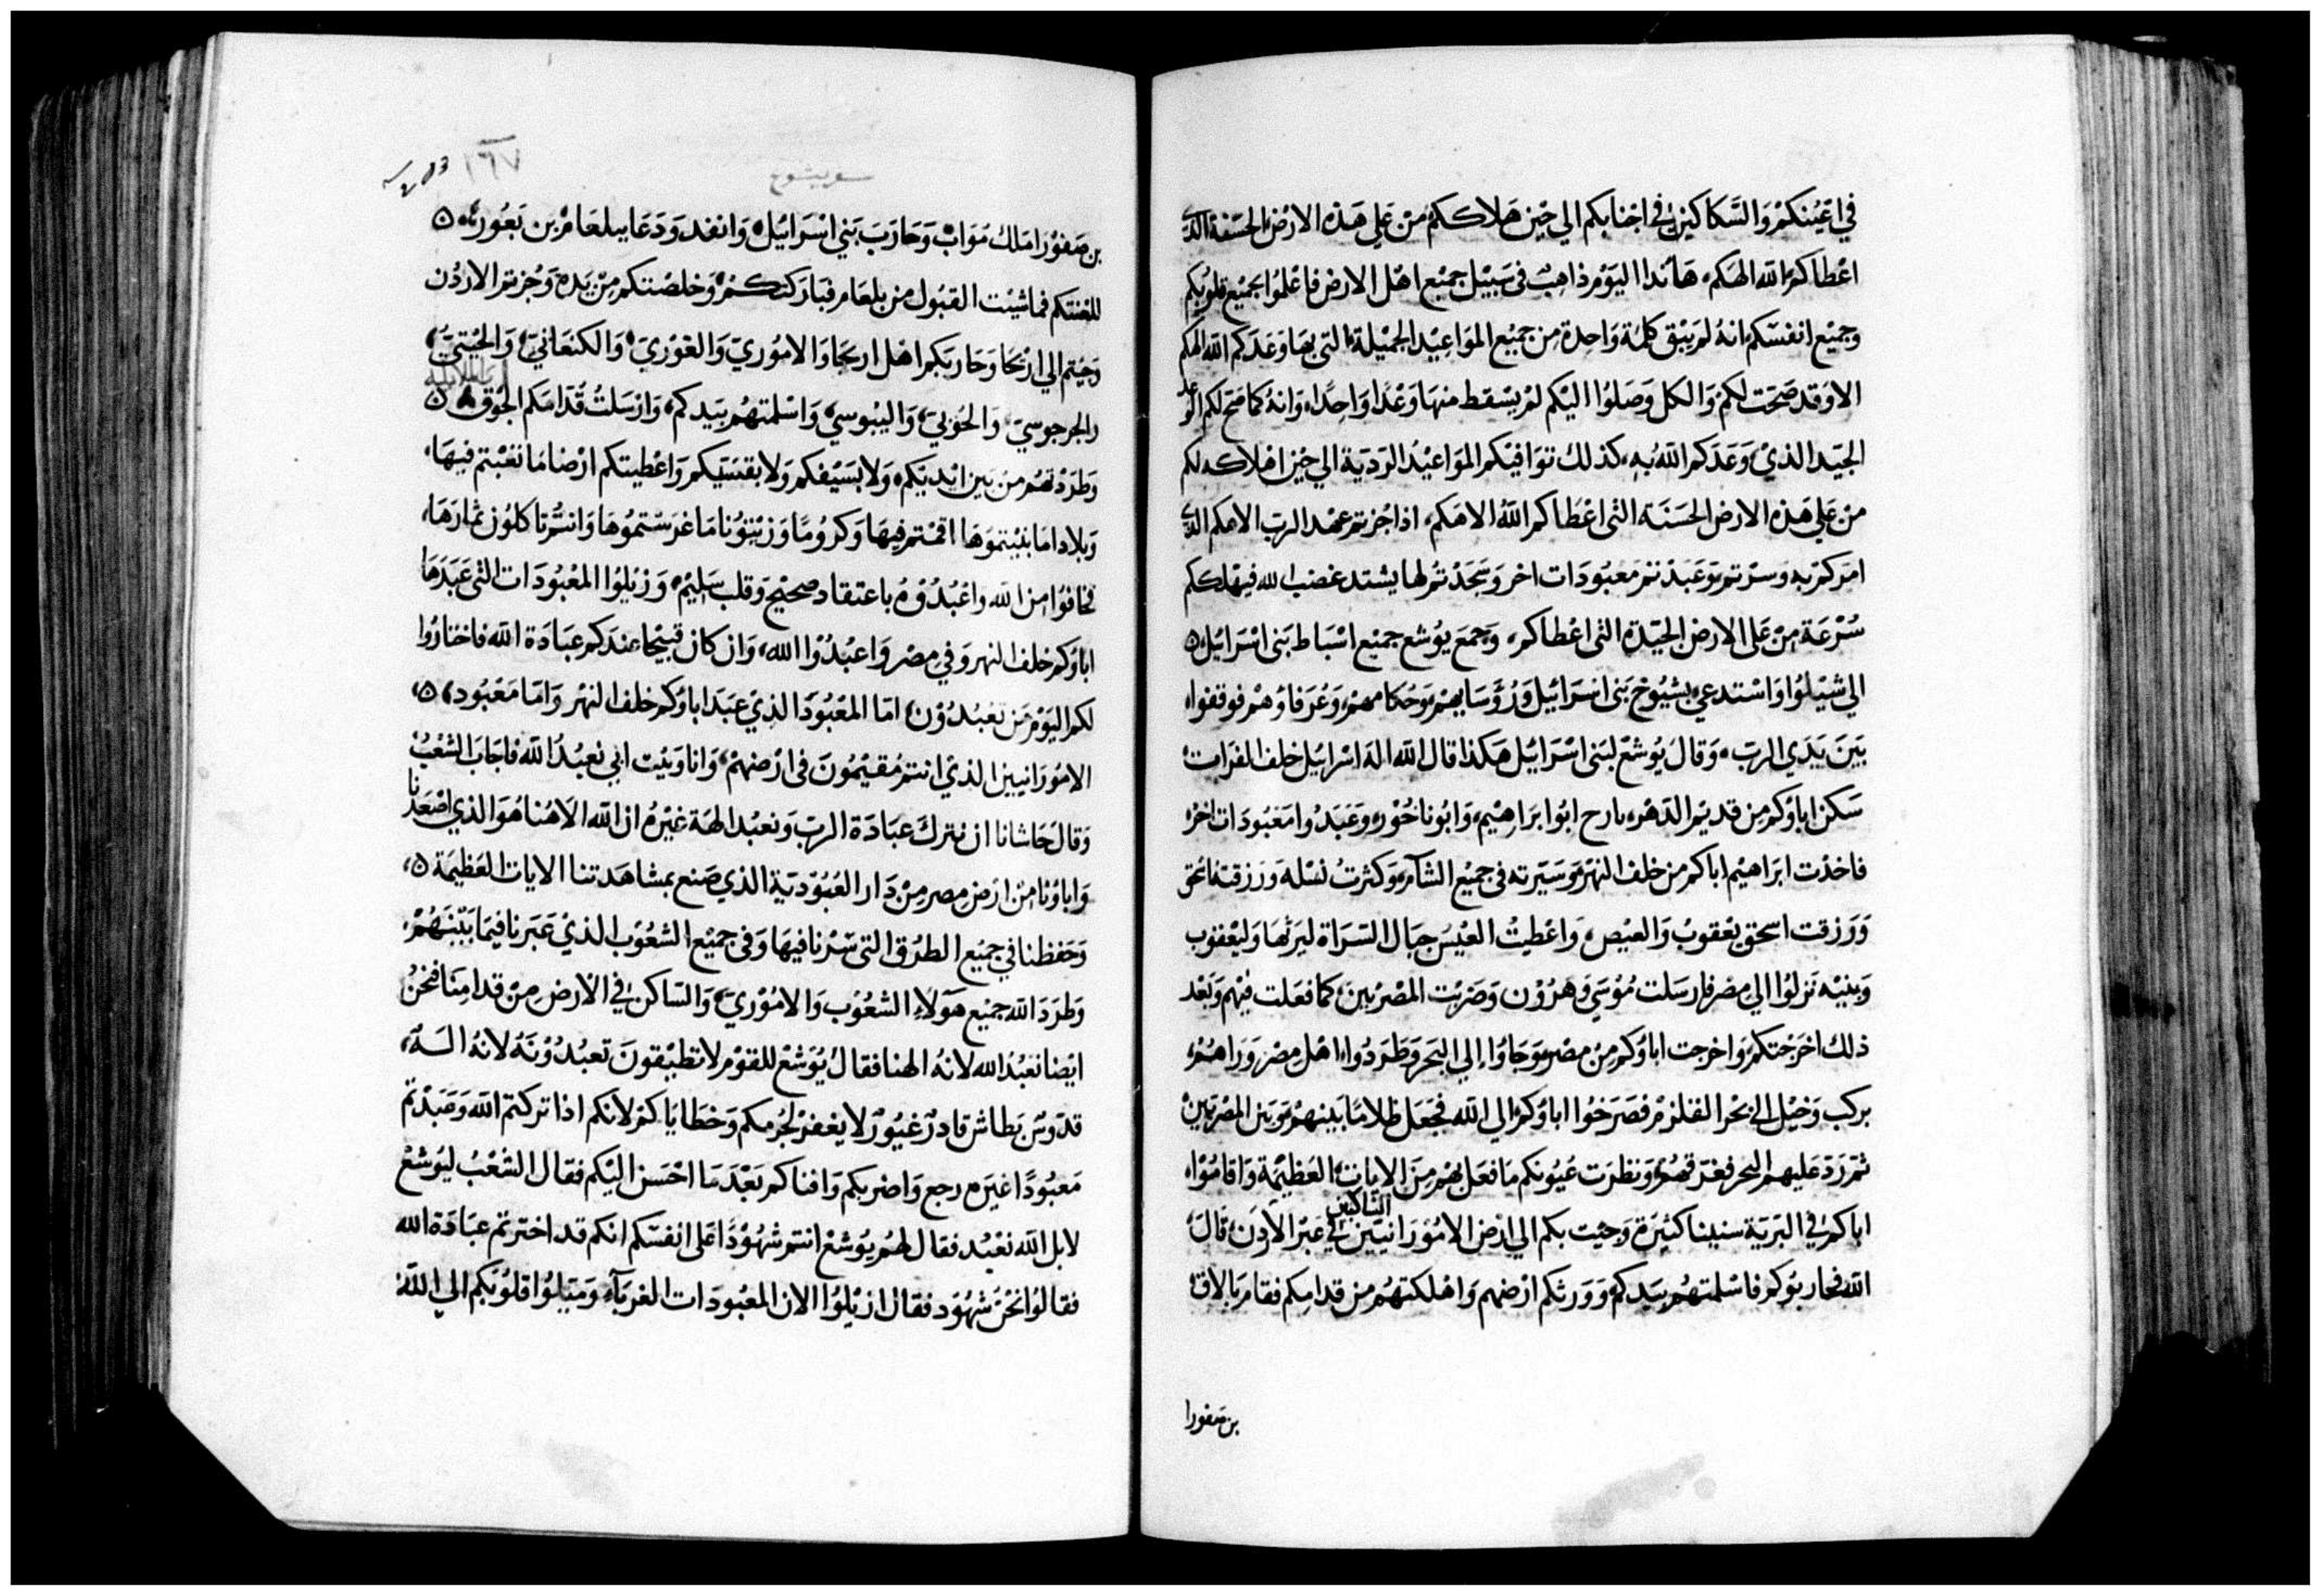 في اعْيُنكمْ وَالسَّكاكين في اجنابكم الي حْيْن هَلاككمْ منْ عَلي هَذه الارْض الحَسَنة الذي
اعْطاكمُ الله الهَكم، هَا نَدا اليَوْم ذاهِبْ في سَبيْل جميْع اهْل الارض فاعْلمُوا بجميْع قلوبُكم
وجميْع انفسَكم انهُ لمَ يَبْق كلِمَة وَاحِدة من جميْع المَوَاعِيْد الجميْلة التي بهَا وَعَدَكم الله الهكم
الا وَقد صَحَت لكم وَالكل وَصَلوُا اليْكم لمْ يسْقط منهَا وَعْدًا وَاحِدًا، وَانهُ كما صَح لكم الوعد
الجيّد الذيْ وَعَدَكم اللهُ بهِ، كذلك توَافيْكم المَوَاعيْد الرَديَة الي حْيْن اهْلاكه لكم
من عَلي هَذه الارض الحَسَنَة التى اعْطاكم اللهُ الاهَكم، اذا جُزتم عَهْد الربّ الاهكم الذي
امَركمْ بهِ وسرْتم وَعَبَدْتم مَعبُودَات اخر وَسَجَدْتم لها يشتد غضب الله فيهْلككم
سُرْعَة منْ عَلى الارض الجيّدة التى اعْطاكم، وَجمعَ يُوشع جميْع اسْبَاط بَنى اسْرَائيْل ۵
الي شيْلوُا وَاسْتدعي بشيُوخ بَنى اسْرَائيل وَرُؤسَايهمْ وَحُكامهمْ وَعُرَفاؤهمْ فوقفوا
بَيْنَ يَدَي الربّ، وَقالَ يُوشعْ لبَنى اسْرَائيْل هَكذا قال الله الهَ اسْرائيل خلف الفرَات
سَكن اباؤكم من قديْم الدَهْر، تارح ابُوا ابرَاهيْم، وَابُو ناحُوْر، وَعَبَدُوا مَعْبُودَات اخرْ
فاخذت ابرَاهيْم اباكم من خلف النهْر وَسَيّرته في جميْع الشآم، وَكثرتُ نسْله وَرَزقتهُ اسحق
وَرَزقت اسحق يَعْقوب وَالعيْص، وَاعْطيتُ العْيْس جبَال السَرَاة ليرثهَا وَليَعْقوب
وَبنيْه نَزلوُا الي مصْر فارسَلت مُوْسَي وَهرُوْن وَضرَبْت المصْريين كما فعَلت فيْهم وَبَعْد
ذلك اخرَجتكمْ وَاخرجت اباؤكم منْ مصْر وَجَاوُا الي البَحر وَطَرَدُوا اهْل مصْر وَرَاهمُ
بركب وَخيْل الي بحْر القلزمْ فصَرَخوُا اباؤكمْ الي الله فجَعَل ظلامًا بَينهمْ وَبَين المصْريين
ثمّ رَدّ عَليهم البَحر فغرّقهُمْ وَنظرَت عُيُونكم مَا فعَل بهُم مِنَ الايات العَظيْمة وَاقامُوا
الساكنين
اباكمْ في البَرّية سنينا كثيرَة وَجيْت بكم الي ارْض الامُوْرَانيين في عَبْر الأردَن قالَ
الله فحَاربُوكم فاسْلمتهمُ بيَدكم وَوَرثكم ارْضهم وَاهْلكتهمُ من قدامِكم فقامَ بَالاق
بن صَفورا
١٦٧
سفر يشوع
بن صَفوْرا مَلك مَوَابْ وَحَارَبَ بَني اسْرَائيْل وَانفد وَدَعَا ببلعَامْ بن بَعُورْ ۵
للعْنتكم فما شيْت القبُول من بلعَام فبَارَكتكمْ وَخلصْتكم مِنْ يَدِه وَجُزتم الارْدُن
وَجيْتم الي ارْيْحَا وَحَارَبكم اهْل اريحَا وَالامُوْريّ وَالغوْريّ وَالكنعَانيّ وَالحيْتيّ
والجرجوسيّ وَالحُوْيّ وَاليْبوسيّ وَاسْلمتهُم بيَدكم، وَارْسَلتُ قُدّامَكم الجُوْق ۵
وَطَرَدْتهُم منْ بَين ايْديَكم، وَلا بسَيْفكم وَلا بقسَيكم وَاعْطيتكم ارْضا مَا تعْبتم فيهَا،
وَبلادا مَا بنيْتموْهَا اقمْتم فيهَا وَكرُومًا وَزيْتوُنا مَا غرَسْتمُوهَا وَانتُم تَاكلوُن ثمارَهَا،
فخافوُا من الله واعْبُدُوْهُ باعتقاد صحيْح وَقلب سَليْم وَزيْلوُا المعْبُودَات التى عَبَدَهَا
اباؤكم خلف النهر وَفي مصْر وَاعبُدُوْا الله، وَان كان قبيْحا عندَكم عبَادَة الله فاختارُوا
لكم اليَوْم مَن تعبُدُوْن، امّا المَعْبُودَا الذيْ عَبَدَ اباؤكم خلف النهْر وَامّا مَعْبُود ۵
الامُورَانيين الذيْ انتم مُقيْمُونَ في ارْضهمْ، وَانا وَبَيْت ابي نعبُدُ الله فاجَابَ الشعْبُ
وَقالَ حَاشانا ان نتركَ عبَادَة الربّ وَنعبُد الهَة غيْرهُ ان الله الاهُنا هُوَ الذي اصْعَدنا
وَاباؤنا منْ ارَض مِصر مِنْ دَار العُبُوْديّة الذي صَنع بمشاهَدتنا الايات العَظيْمَة ۵
وَحَفظنا في جميْع الطرُق التى سْرنا فيهَا وَفي جميْع الشعُوْب الذيْ عَبَرنا فيمَا بَيْنَهُمْ
وَطرَدَ الله جميْع هَوَلاء الشعُوْب وَالامُوْريّ وَالسَاكن في الارْض مِنْ قدامِنا فنحنُ
ايْضا نعَبُدُ الله لانهُ الهنا فقالُ يُوَشعْ للقوْم لا تطيْقونَ تعبُدُوْنهُ لانهُ الهَ
قدّوسْ بَطاش قادرْ غيُوْرْ لا يغفرْ لجُرْمكم وَخطَايَاكمْ لانكم اذا تركتم الله وَعَبَدْتم
مَعبُودًا غيَره رجع وَاضربكم وَافناكم بَعْدَ مَا احْسَن اليْكم فقال الشعْبُ ليُوشعْ
لا بل الله نعْبُد فقال لهُم يُوشعْ انتم شهُوْدًا عَلى انفسَكم انكم قد اخترتم عبَادَة الله
فقالوُا نحْنُ شهُوْد فقال ازيْلوُا الان المعْبُودَات الغرَبآء وَمَيّلوُا قلوُبَكم الي الله